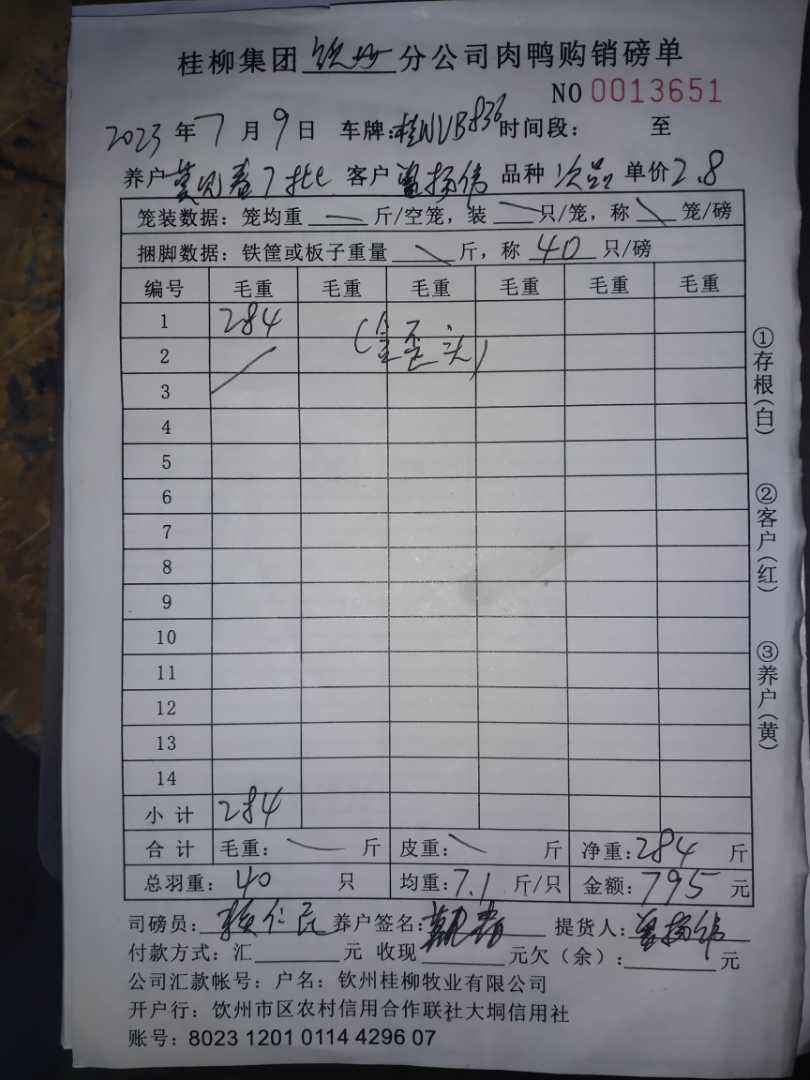 桂柳集团 钦州 分公司肉鸭购销磅单
NO 0013651
2023 年 7 月 9 日 车牌: 桂NVB836 时间段: 至
养户 7批 客户 曾扬伟 品种 次品 单价 2.8
笼装数据: 笼均重 — 斤/空笼, 装 — 只/笼, 称 \ 笼/磅
捆脚数据: 铁筐或板子重量 \ 斤, 称 40 只/磅
编号 毛重 毛重 毛重 毛重 毛重 毛重
1 284
(全歪头)
2
3
4
5
6
7
8
9
10
11
12
13
14
小计 284
合计 毛重: — 斤 皮重: \ 斤 净重: 284 斤
总羽重: 40 只 均重: 7.1 斤/只 金额: 795 元
司磅员: 赖仁民 养户签名: 提货人: 曾扬伟
付款方式: 汇 元 收现 元欠(余): 元
公司汇款帐号: 户名: 钦州桂柳牧业有限公司
开户行: 饮州市区农村信用合作联社大垌信用社
账号: 8023 1201 0114 4296 07
①存根(白)
②客户(红)
③养户(黄)